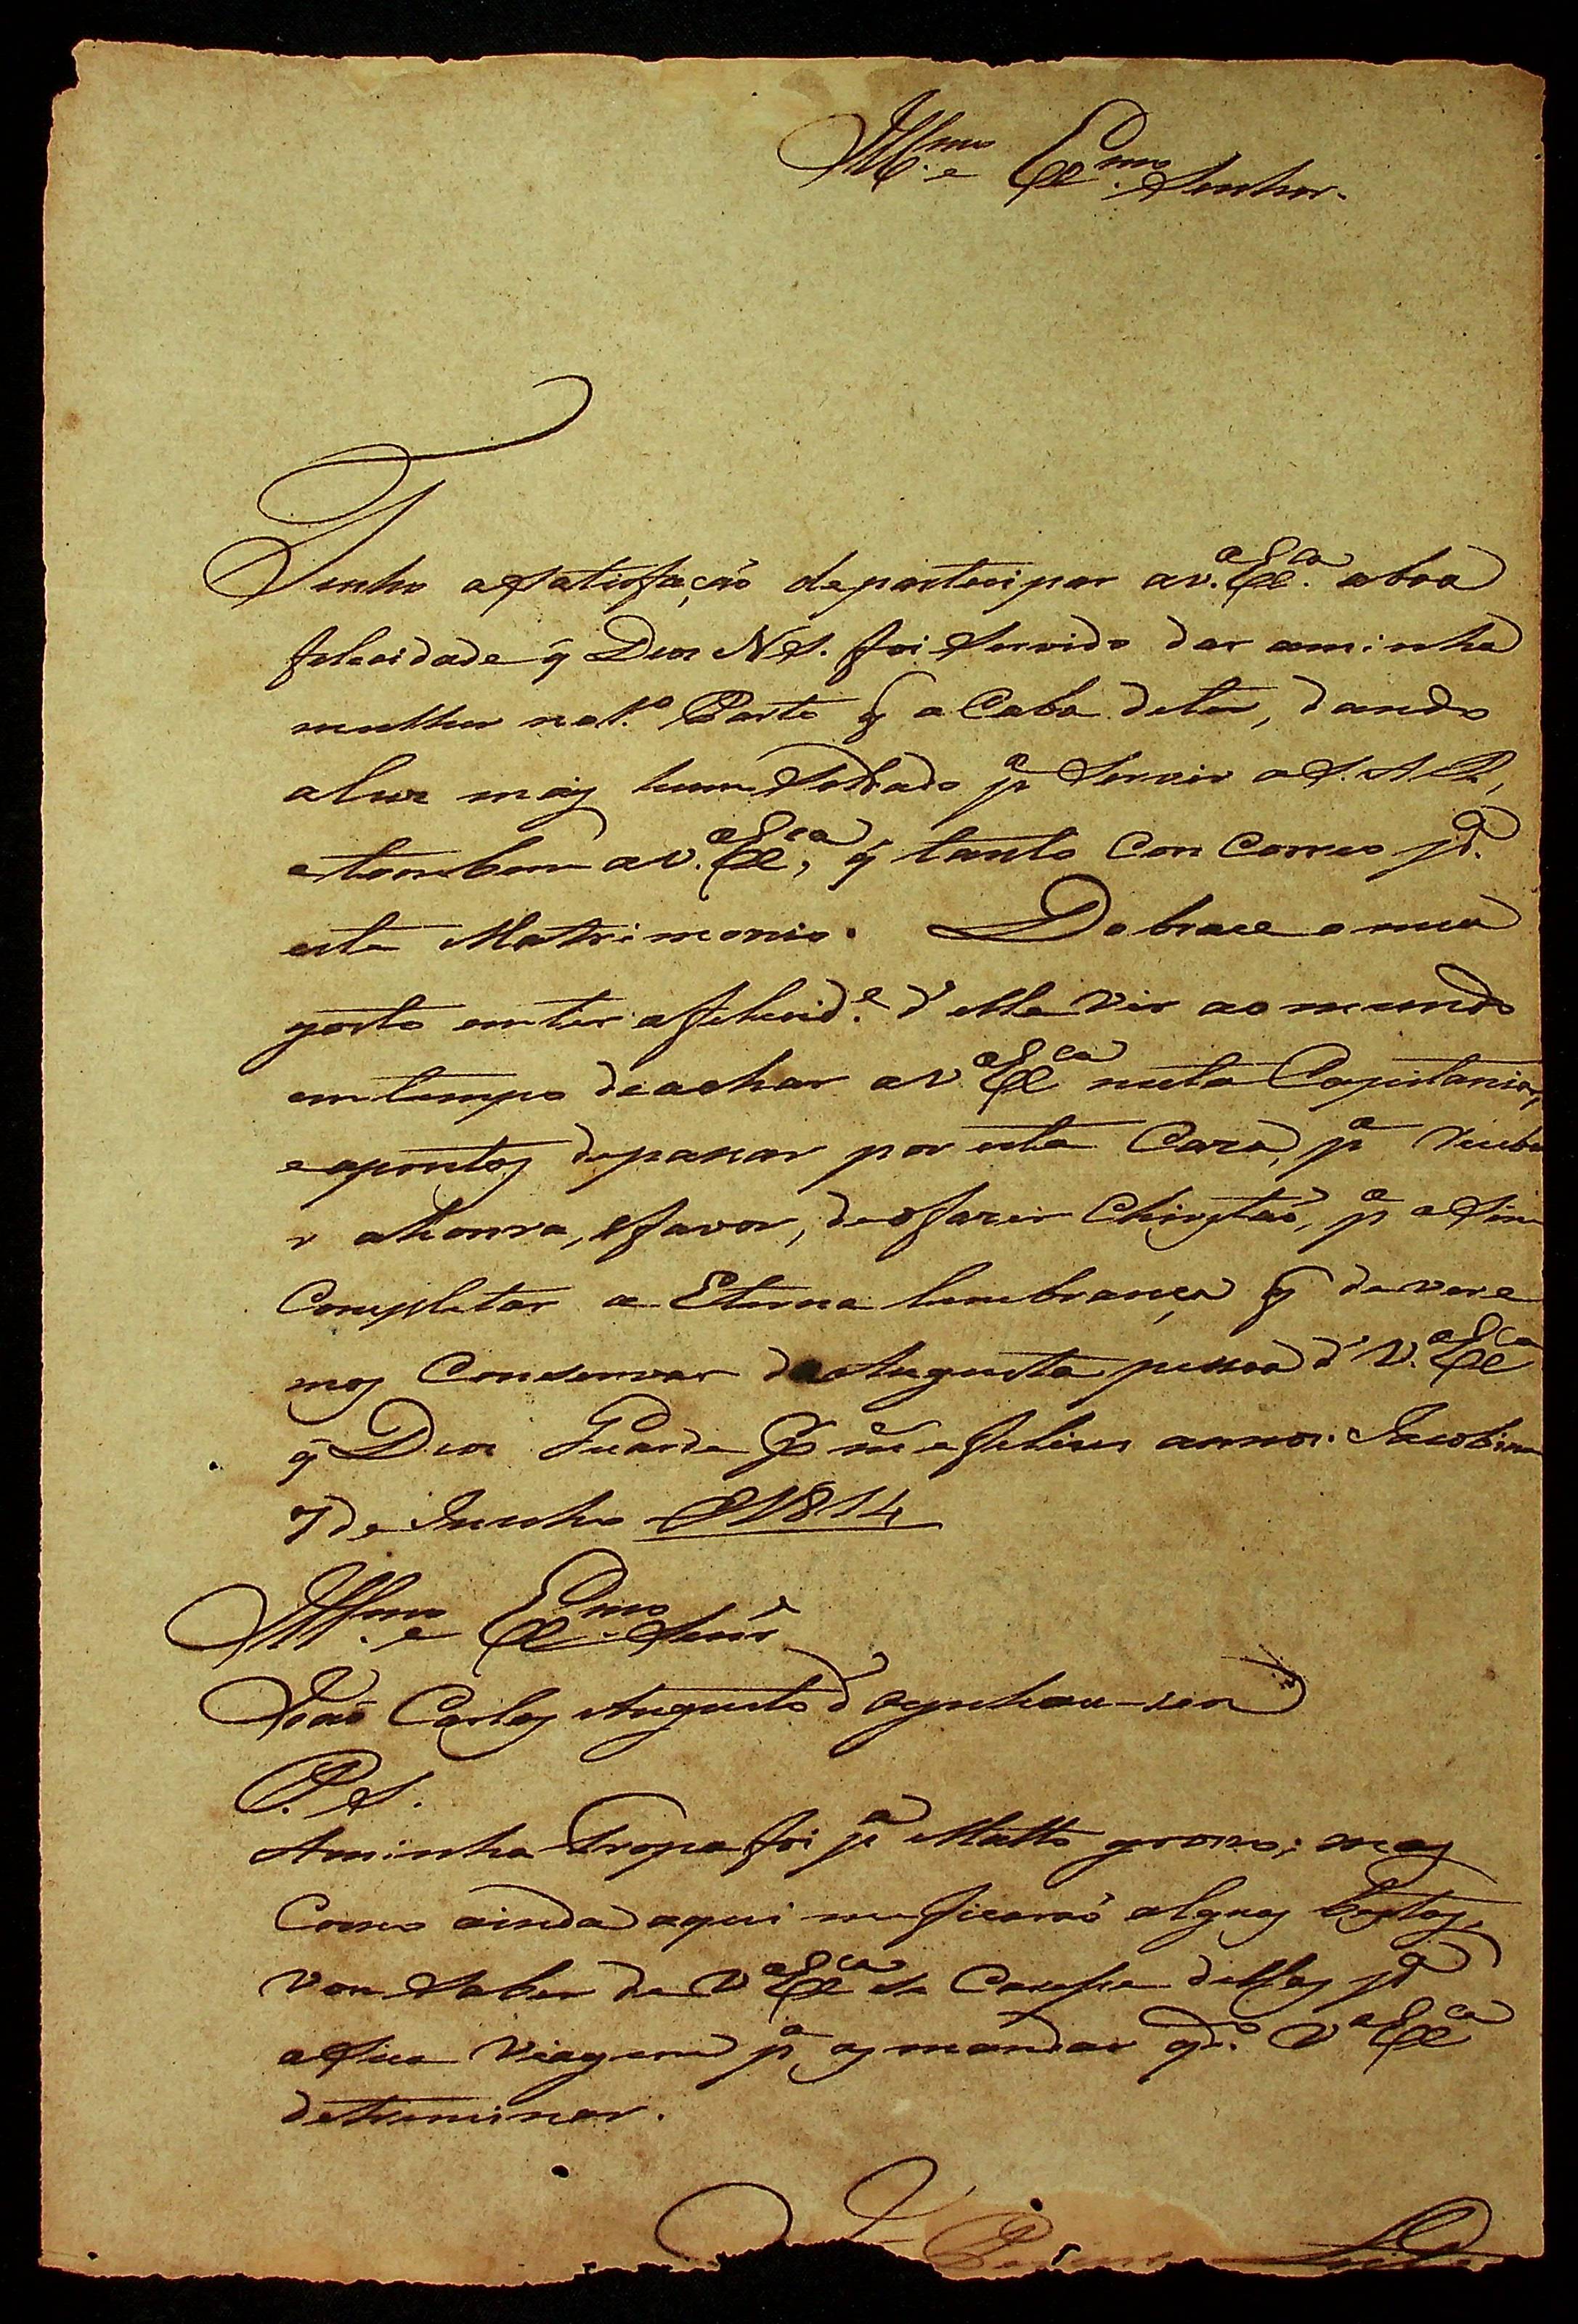 Ill.mo e Ex.mo Senhor.
Tenho asatisfação departecipar av.a Ex.ca aboa
felecidade q̃ Deos N S. foi servido dar aminha
mulher no 1.o Parto q̃ a Caba deter, dando
aluz mais hum Soldado p.a Servir a S. A R,
etambem av.a Ex.ca, q̃ tanto Con Correo p.a
este Matrimonio. Dobrace omeu
gosto emter afelecid.e d'elle vir ao mundo
emtempo deachar av.a Ex.ca nesta Capitania,
eaprontos depasar por esta Caza, p.a recebe
r ahonra, efavor, deofazer Christaõ, p.a asim
Completar a Eterna lembrança q̃ devere
mos Conservar da Augusta pessoa d'V.a Ex.ca
q̃ Deos Guarde p.r m.s efelices annos. Jacobina
7 de Junho d1814
Ill.mo e Ex.mo Senr
Joaõ Carlos Augusto d'Oeynhau-sen
P. S.
Aminha Tropa foi p.a Matto groso; mas
Como ainda aqui meficaraõ algũas bestas,
vou saber de V.a Ex.ca se Carese dellas p.a
asua viagem p.a as mandar qd.o V.a Ex.ca
detreminar.
Leite